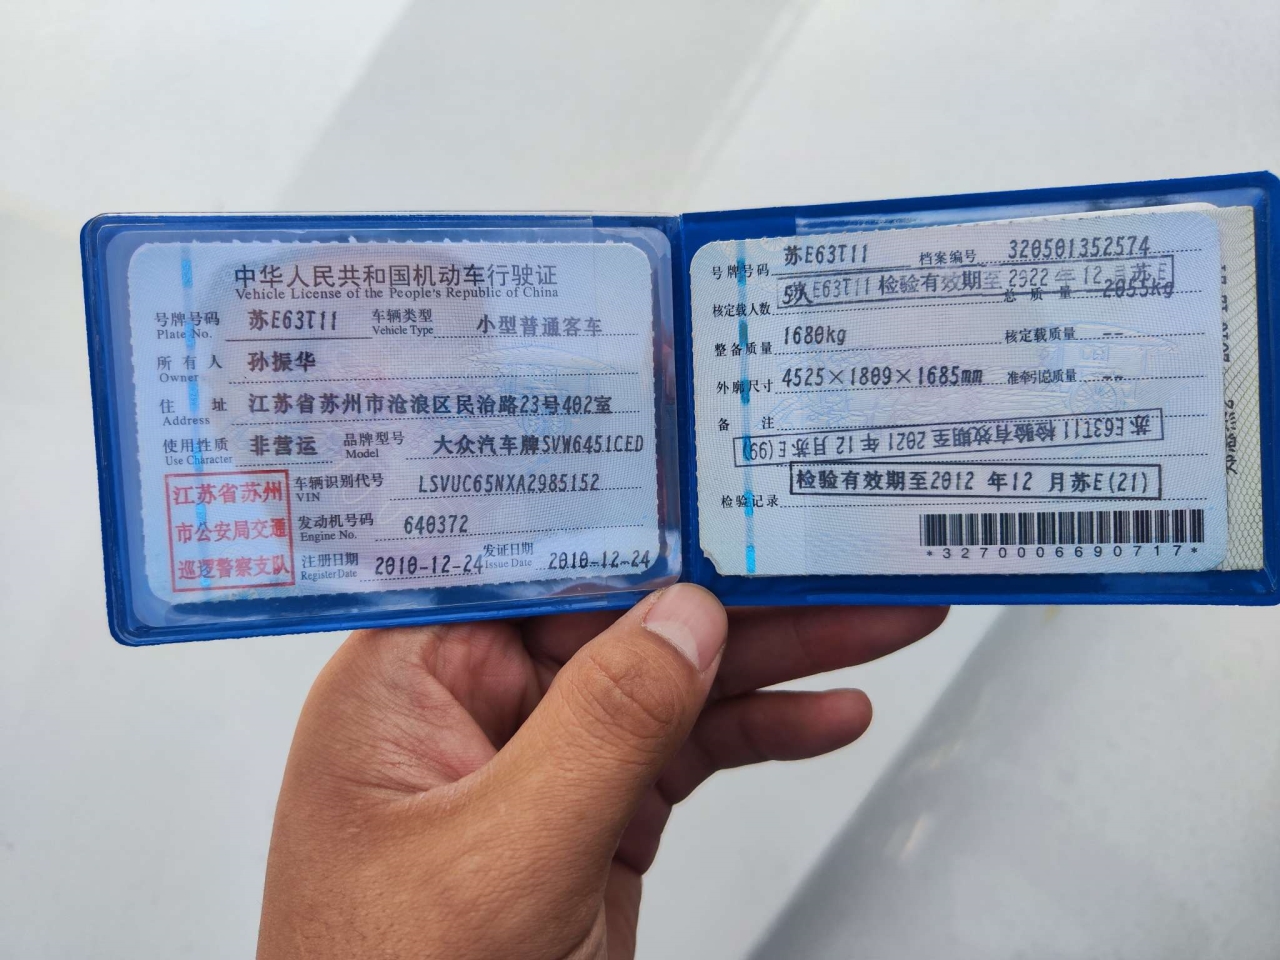 中华人民共和国机动车行驶证
Vehicle License of the People's Republic of China
号牌号码 苏E63T11 车辆类型 小型普通客车
Plate No. Vehicle Type
所有人 孙振华
Owner
住址 江苏省苏州市沧浪区民治路23号402室
Address
使用性质 非营运 品牌型号 大众汽车牌SVW6451CED
Use Character Model
江苏省苏州
市公安局交通
巡逻警察支队
车辆识别代号 LSVUC65NXA2985152
VIN
发动机号码 640372
Engine No.
注册日期 2010-12-24 发证日期 2010-12-24
Register Date Issue Date
号牌号码 苏E63T11 档案编号 320501352574
苏E63T11 检验有效期至2022年12月苏E
核定载人数 5人 总质量 2055kg
整备质量 1680kg 核定载质量 --
外廓尺寸 4525×1809×1685mm 准牵引总质量 --
备注
苏E63T11 检验有效期至2021年12月苏E(99)
检验有效期至2012年12月苏E(21)
检验记录
*3270006690717*